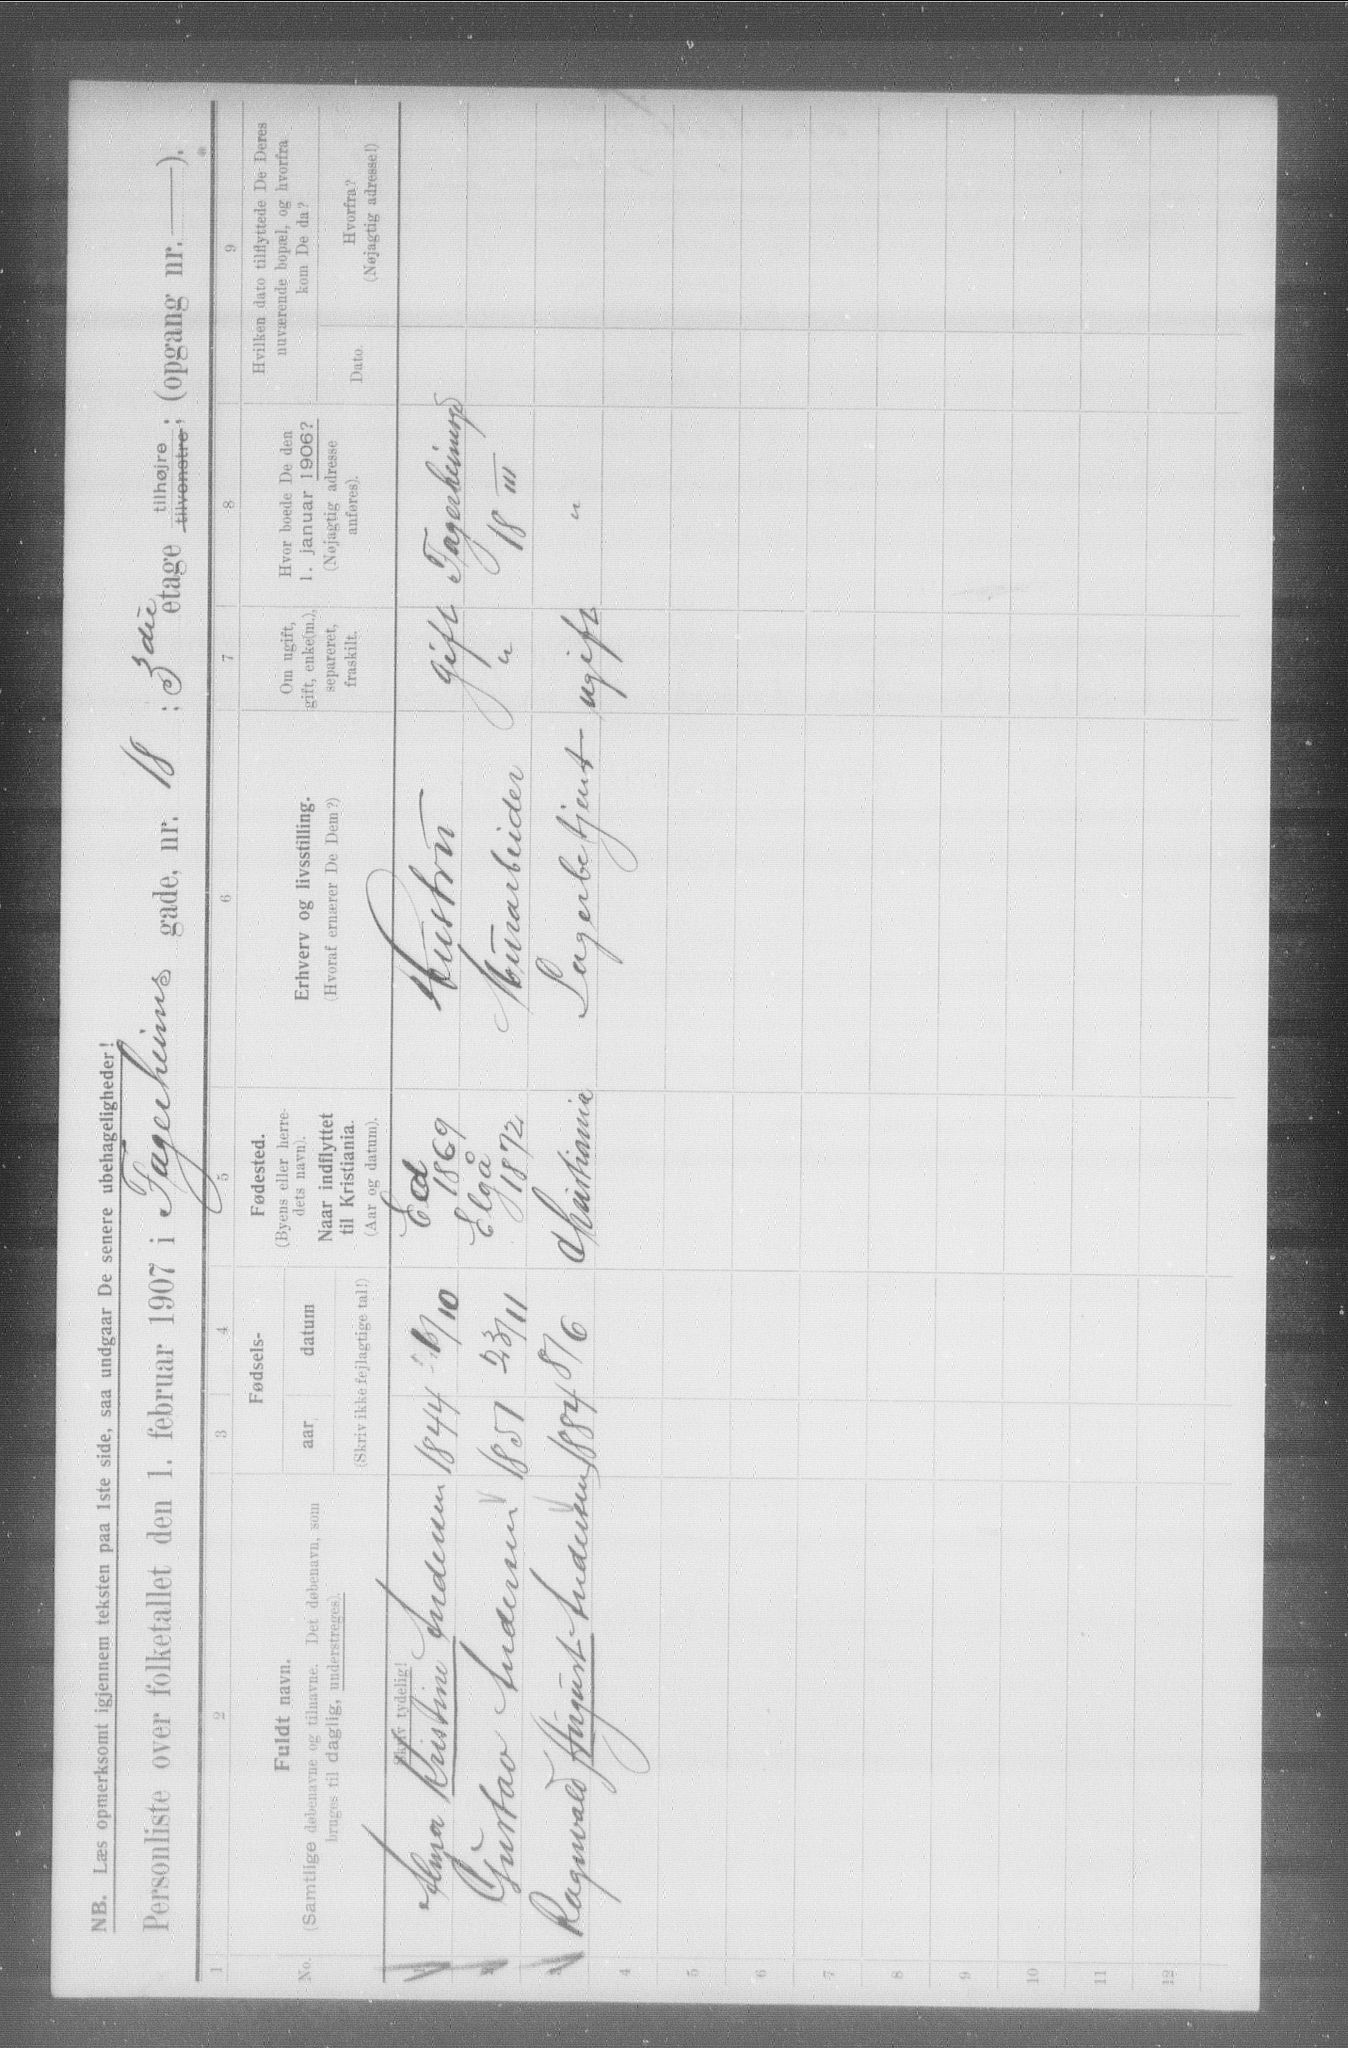 NB. Læs opmerksomt igjennem teksten paa 1ste side, saa undgaar De senere ubehageligheder!
Personliste over folketallet den 1. februar 1907 i Fagerheims gade, nr. 18 ; 3die etage tilhøjre tilvenstre ; (opgang nr. —).
1 2 3 4 5 6 7 8 9
No.
Fuldt navn.
(Samtlige døbenavne og tilnavne. Det døbenavn, som
bruges til daglig, understreges).
Fødsels-
aar datum
(Skriv ikke fejlagtige tal!)
Fødested.
(Byens eller herre-
dets navn).
Naar indflyttet
til Kristiania.
(Aar og datum).
Erhverv og livsstilling.
(Hvoraf ernærer De Dem?)
Om ugift,
gift, enke(m.),
separeret,
fraskilt.
Hvor boede De den
1. januar 1906?
(Nøjagtig adresse
anføres).
Hvilken dato tilflyttede De Deres
nuværende bopæl, og hvorfra
kom De da?
Dato.
Hvorfra?
(Nøjagtig adresse!)
Skriv tydelig!
1 Kristine Andersen 1844 /10 Ed 1869 Hustru gift Fagerheimsgd
2 Gustav Andersen 1851 23/11 Elgå 1872 Murarbeider " 18 III
3 Ragnvald August Andersen 1884 8/6 Christiania Lagerbetjent ugift "
4
5
6
7
8
9
10
11
12